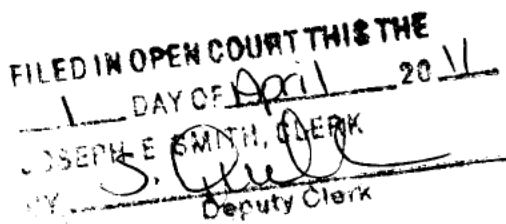 FILED IN OPEN COURT THIS THE
1 DAY OF April 2011
JOSEPH E SMITH, CLERK
BY S.
Deputy Clerk